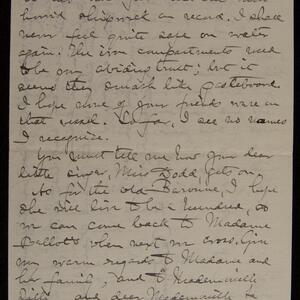 horrid shipwreck on record. I shall
never feel quite safe on water
again. The iron compartments used
to be my abiding trust; but it
seems they smash like pasteboard.
I hope none of your friends were on
that vessel. So far, I see no names
I recognize.
You must tell me how your dear
little singer, Miss Dodd, gets on.
As for the old Baronne, I hope
she will live to be a hundred, so
we can come back to Madame
when next we cross. Give
my warm regards to Madame and
his family, and to Mademoiselle
and dear Mademoiselle